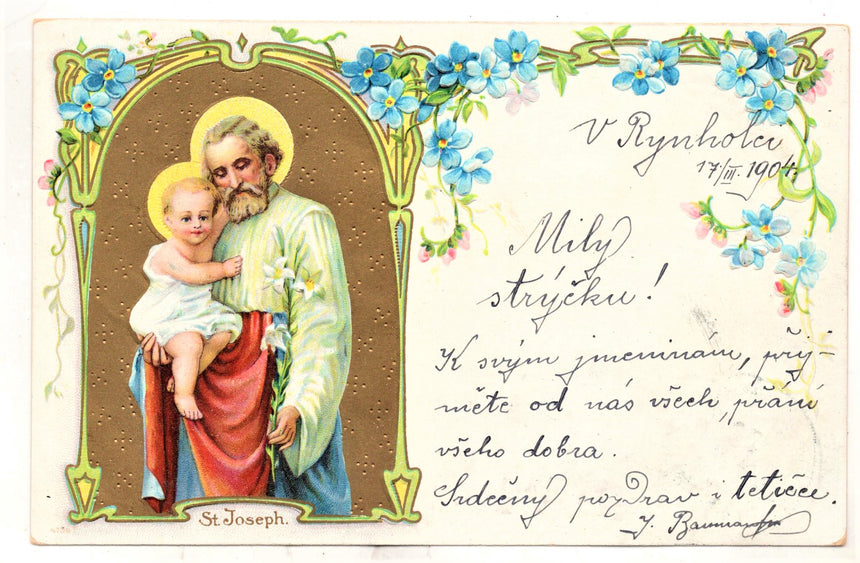 St. Joseph.
V Rynholci
17/III. 1904.
Milý
strýčku!
K svým jmeninám, přij-
měte od nás všech, přání
všeho dobra.
Srdečný pozdrav i tetičce.
J.